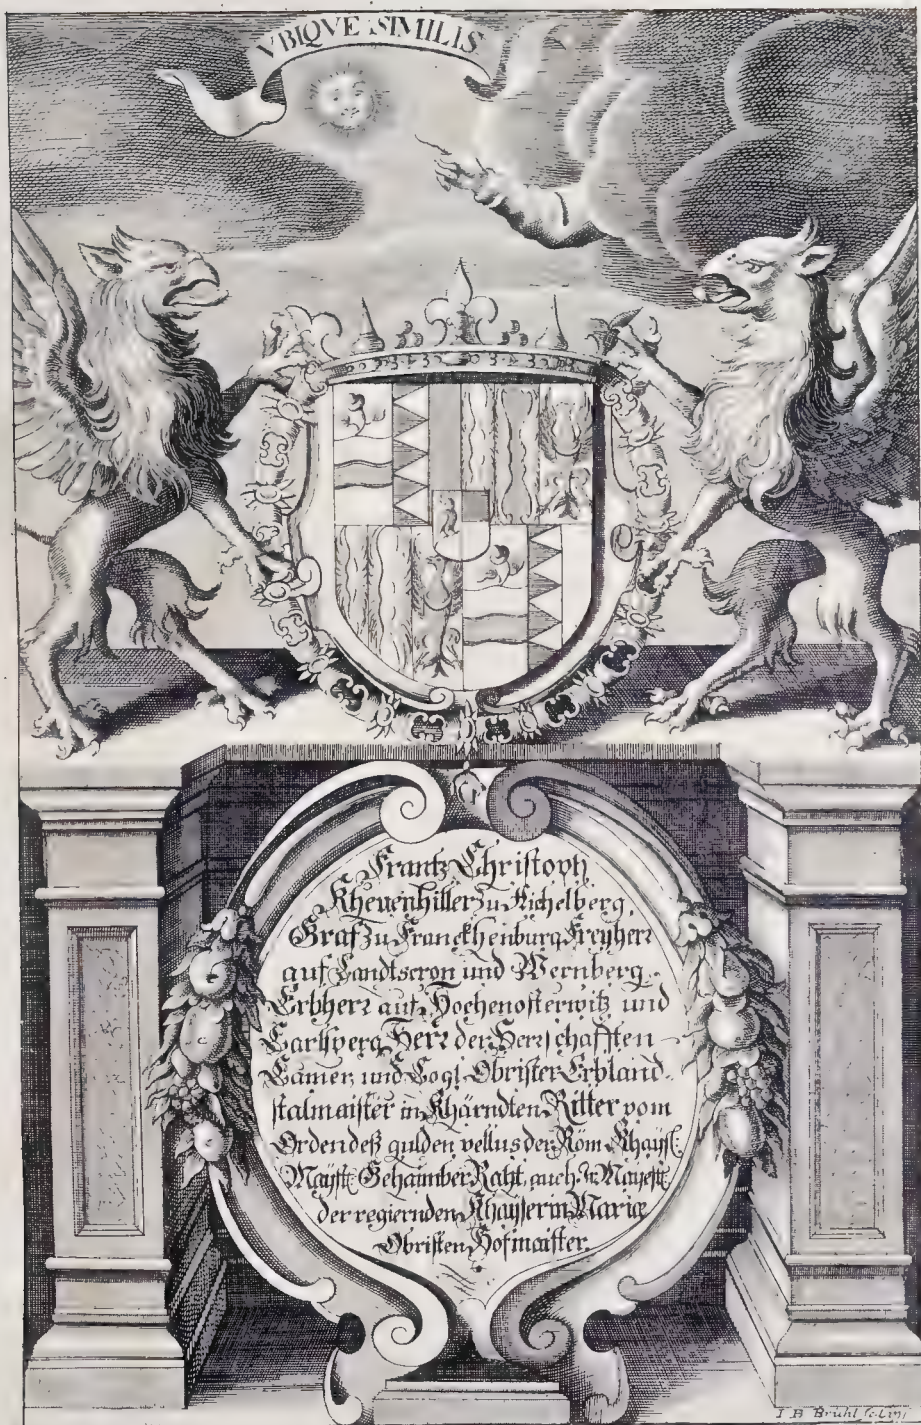 VBIQVE SIMILIS
Frantz Christoph
Khevenhiller zu Aichelberg,
Graf zu Franckhenburg Freyherr
auf Landtscron und Wernberg,
Erbherr auf Hochenosterwitz und
Carlsperg Herr der Herrschafften
Camer, und Cogl Obrister Erbland-
stalmaister in Khärndten Ritter vom
Orden deß gulden vellus der Röm. Khaysl:
Mayst: Gehaimber Raht, auch Mayest:
der regiernden Khayserin Mariæ
Obristen Hofmaister.
I B Brühl sc. Lips